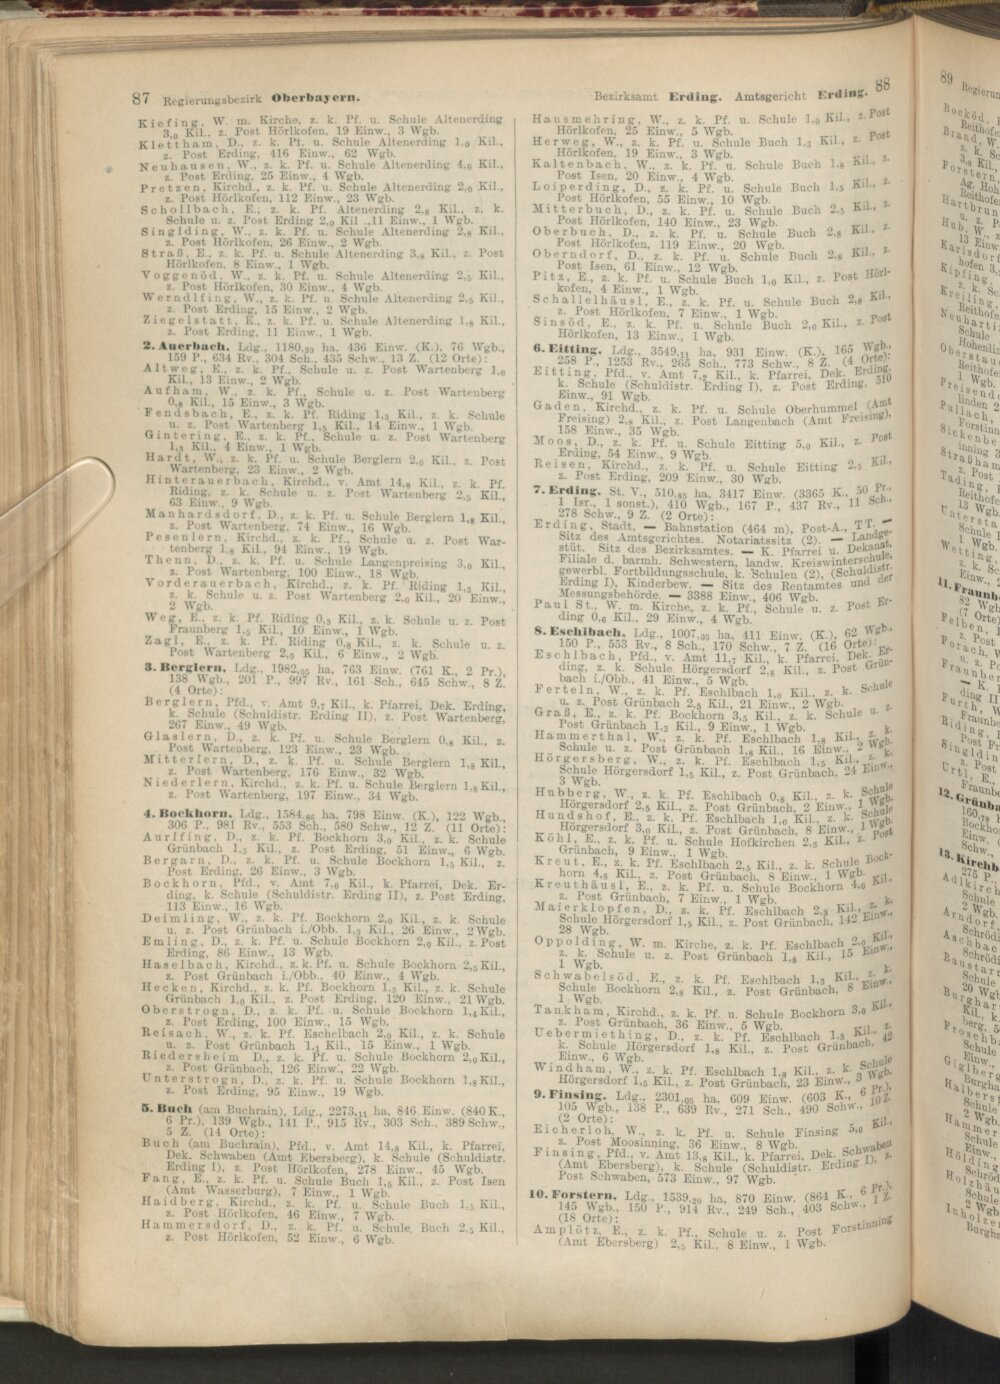 87 Regierungsbezirk Oberbayern.
Kiefing, W. m. Kirche, z. k. Pf. u. Schule Altenerding
3,0 Kil., z. Post Hörlkofen, 19 Einw., 3 Wgb.
Klettham, D., z. k. Pf. u. Schule Altenerding 1,0 Kil.,
z. Post Erding, 416 Einw., 62 Wgb.
Neuhausen, W., z. k. Pf. u. Schule Altenerding 4,0 Kil.,
z. Post Erding, 25 Einw., 4 Wgb.
Pretzen, Kirchd., z. k. Pf. u. Schule Altenerding 2,0 Kil.,
z. Post Hörlkofen, 112 Einw., 23 Wgb.
Schollbach, E., z. k. Pf. Altenerding 2,8 Kil., z. k.
Schule u. z. Post Erding 2,0 Kil., 11 Einw., 1 Wgb.
Singlding, W., z. k. Pf. u. Schule Altenerding 2,8 Kil.,
z. Post Hörlkofen, 26 Einw., 2 Wgb.
Straß, E., z. k. Pf. u. Schule Altenerding 3,8 Kil., z. Post
Hörlkofen, 8 Einw., 1 Wgb.
Voggenöd, W., z. k. Pf. u. Schule Altenerding 2,5 Kil.,
z. Post Hörlkofen, 30 Einw., 4 Wgb.
Werndlfing, W., z. k. Pf. u. Schule Altenerding 2,5 Kil.,
z. Post Erding, 15 Einw., 2 Wgb.
Ziegelstatt, E., z. k. Pf. u. Schule Altenerding 1,8 Kil.,
z. Post Erding, 11 Einw., 1 Wgb.
2. Auerbach, Ldg., 1180,39 ha, 436 Einw. (K.), 76 Wgb.,
159 P., 634 Rv., 304 Sch., 435 Schw., 13 Z. (12 Orte):
Altweg, E., z. k. Pf., Schule u. z. Post Wartenberg 1,6
Kil., 13 Einw., 2 Wgb.
Aufham, W., z. k. Pf., Schule u. z. Post Wartenberg
0,8 Kil., 15 Einw., 3 Wgb.
Fendsbach, E., z. k. Pf. Riding 1,3 Kil., z. k. Schule
u. z. Post Wartenberg 1,5 Kil., 14 Einw., 1 Wgb.
Gintering, E., z. k. Pf., Schule u. z. Post Wartenberg
1,5 Kil., 4 Einw., 1 Wgb.
Hardt, W., z. k. Pf. u. Schule Berglern 2,0 Kil., z. Post
Wartenberg, 23 Einw., 2 Wgb.
Hinterauerbach, Kirchd., v. Amt 14,8 Kil., z. k. Pf.
Riding, z. k. Schule u. z. Post Wartenberg 2,5 Kil.,
63 Einw., 9 Wgb.
Manhardsdorf, D., z. k. Pf. u. Schule Berglern 1,8 Kil.,
z. Post Wartenberg, 74 Einw., 16 Wgb.
Pesenlern, Kirchd., z. k. Pf., Schule u. z. Post War-
tenberg 1,8 Kil., 94 Einw., 19 Wgb.
Thenn, D., z. k. Pf. u. Schule Langenpreising 3,0 Kil.,
z. Post Wartenberg, 100 Einw., 18 Wgb.
Vorderauerbach, Kirchd., z. k. Pf. Riding 1,3 Kil.,
z. k. Schule u. z. Post Wartenberg 2,0 Kil., 20 Einw.,
2 Wgb.
Weg, E., z. k. Pf. Riding 0,3 Kil., z. k. Schule u. z. Post
Fraunberg 1,5 Kil., 10 Einw., 1 Wgb.
Zagl, E., z. k. Pf. Riding 0,8 Kil., z. k. Schule u. z.
Post Wartenberg 2,0 Kil., 6 Einw., 2 Wgb.
3. Berglern, Ldg., 1982,05 ha, 763 Einw. (761 K., 2 Pr.),
138 Wgb., 201 P., 997 Rv., 161 Sch., 645 Schw., 8 Z.
(4 Orte):
Berglern, Pfd., v. Amt 9,7 Kil., k. Pfarrei, Dek. Erding,
k. Schule (Schuldistr. Erding II), z. Post Wartenberg,
267 Einw., 49 Wgb.
Glaslern, D., z. k. Pf. u. Schule Berglern 0,8 Kil., z.
Post Wartenberg, 123 Einw., 23 Wgb.
Mitterlern, D., z. k. Pf. u. Schule Berglern 1,8 Kil.,
z. Post Wartenberg, 176 Einw., 32 Wgb.
Niederlern, Kirchd., z. k. Pf. u. Schule Berglern 1,8 Kil.,
z. Post Wartenberg, 197 Einw., 34 Wgb.
4. Bockhorn, Ldg., 1584,86 ha, 798 Einw. (K.), 122 Wgb.,
306 P., 981 Rv., 553 Sch., 580 Schw., 12 Z. (11 Orte):
Aurlfing, D., z. k. Pf. Bockhorn 3,0 Kil., z. k. Schule
Grünbach 1,3 Kil., z. Post Erding, 51 Einw., 6 Wgb.
Bergarn, D., z. k. Pf. u. Schule Bockhorn 1,5 Kil., z.
Post Erding, 26 Einw., 3 Wgb.
Bockhorn, Pfd., v. Amt 7,0 Kil., k. Pfarrei, Dek. Er-
ding, k. Schule (Schuldistr. Erding II), z. Post Erding,
113 Einw., 16 Wgb.
Deimling, W., z. k. Pf. Bockhorn 2,0 Kil., z. k. Schule
u. z. Post Grünbach i./Obb. 1,3 Kil., 26 Einw., 2 Wgb.
Emling, D., z. k. Pf. u. Schule Bockhorn 2,0 Kil., z. Post
Erding, 86 Einw., 13 Wgb.
Haselbach, Kirchd., z. k. Pf. u. Schule Bockhorn 2,5 Kil.,
z. Post Grünbach i./Obb., 40 Einw., 4 Wgb.
Hecken, Kirchd., z. k. Pf. Bockhorn 1,3 Kil., z. k. Schule
Grünbach 1,0 Kil., z. Post Erding, 120 Einw., 21 Wgb.
Oberstrogn, D., z. k. Pf. u. Schule Bockhorn 1,4 Kil.,
z. Post Erding, 100 Einw., 15 Wgb.
Reisach, W., z. k. Pf. Eschelbach 2,0 Kil., z. k. Schule
u. z. Post Grünbach 1,1 Kil., 15 Einw., 1 Wgb.
Riedersheim D., z. k. Pf. u. Schule Bockhorn 2,0 Kil.,
z. Post Grünbach, 126 Einw., 22 Wgb.
Unterstrogn, D., z. k. Pf. u. Schule Bockhorn 1,8 Kil.,
z. Post Erding, 95 Einw., 19 Wgb.
5. Buch (am Buchrain), Ldg., 2273,11 ha, 846 Einw. (840 K.,
6 Pr.), 139 Wgb., 141 P., 915 Rv., 303 Sch., 389 Schw.,
5 Z. (14 Orte):
Buch (am Buchrain), Pfd., v. Amt 14,8 Kil., k. Pfarrei,
Dek. Schwaben (Amt Ebersberg), k. Schule (Schuldistr.
Erding I), z. Post Hörlkofen, 278 Einw., 45 Wgb.
Fang, E., z. k. Pf. u. Schule Buch 1,5 Kil., z. Post Isen
(Amt Wasserburg), 7 Einw., 1 Wgb.
Haidberg, Kirchd., z. k. Pf. u. Schule Buch 1,5 Kil.,
z. Post Hörlkofen, 46 Einw., 7 Wgb.
Hammersdorf, D., z. k. Pf. u. Schule Buch 2,5 Kil.,
z. Post Hörlkofen, 52 Einw., 6 Wgb.
Bezirksamt Erding. Amtsgericht Erding. 88
Hausmehring, W., z. k. Pf. u. Schule 1,0 Kil., z. Post
Hörlkofen, 25 Einw., 5 Wgb.
Herweg, W., z. k. Pf. u. Schule Buch 1,3 Kil., z. Post
Hörlkofen, 19 Einw., 3 Wgb.
Kaltenbach, W., z. k. Pf. u. Schule Buch 1,8 Kil., z.
Post Isen, 20 Einw., 4 Wgb.
Loiperding, D., z. k. Pf. u. Schule Buch 1,5 Kil., z.
Post Hörlkofen, 55 Einw., 10 Wgb.
Mitterbuch, D., z. k. Pf. u. Schule Buch 2,5 Kil., z.
Post Hörlkofen, 140 Einw., 23 Wgb.
Oberbuch, D., z. k. Pf. u. Schule Buch 2,8 Kil., z.
Post Hörlkofen, 119 Einw., 20 Wgb.
Oberndorf, D., z. k. Pf. u. Schule Buch 2,8 Kil., z.
Post Isen, 61 Einw., 12 Wgb.
Pitz, E., z. k. Pf. u. Schule Buch 1,0 Kil., z. Post Hörl-
kofen, 4 Einw., 1 Wgb.
Schallelhäusl, E., z. k. Pf. u. Schule Buch 2,8 Kil.,
z. Post Hörlkofen, 7 Einw., 1 Wgb.
Sinsöd, E., z. k. Pf. u. Schule Buch 2,0 Kil., z. Post
Hörlkofen, 13 Einw., 1 Wgb.
6. Eitting, Ldg., 3549,11 ha, 931 Einw. (K.), 165 Wgb.,
258 P., 1253 Rv., 265 Sch., 773 Schw., 8 Z. (4 Orte):
Eitting, Pfd., v. Amt 7,2 Kil., k. Pfarrei, Dek. Erding,
k. Schule (Schuldistr. Erding I), z. Post Erding, 510
Einw., 91 Wgb.
Gaden, Kirchd., z. k. Pf. u. Schule Oberhummel (Amt
Freising) 2,8 Kil., z. Post Langenbach (Amt Freising),
158 Einw., 35 Wgb.
Moos, D., z. k. Pf. u. Schule Eitting 5,0 Kil., z. Post
Erding, 54 Einw., 9 Wgb.
Reisen, Kirchd., z. k. Pf. u. Schule Eitting 2,5 Kil.,
z. Post Erding, 209 Einw., 30 Wgb.
7. Erding, St. V., 510,85 ha, 3417 Einw. (3365 K., 50 Pr.,
1 Isr., 1 sonst.), 410 Wgb., 167 P., 437 Rv., 11 Sch.,
278 Schw., 9 Z. (2 Orte):
Erding, Stadt, — Bahnstation (464 m), Post-A., TT. —
Sitz des Amtsgerichtes. Notariatssitz (2). — Landge-
stüt. Sitz des Bezirksamtes. — K. Pfarrei u. Dekanat,
Filiale d. barmh. Schwestern, landw. Kreiswinterschule,
gewerbl. Fortbildungsschule, k. Schulen (2), (Schuldistr.
Erding I), Kinderbew. — Sitz des Rentamtes und der
Messungsbehörde. — 3388 Einw., 406 Wgb.
Paul St., W. m. Kirche, z. k. Pf., Schule u. z. Post Er-
ding 0,6 Kil., 29 Einw., 4 Wgb.
8. Eschlbach, Ldg., 1007,05 ha, 411 Einw. (K.), 62 Wgb.,
150 P., 553 Rv., 8 Sch., 170 Schw., 7 Z. (16 Orte):
Eschlbach, Pfd., v. Amt 11,7 Kil., k. Pfarrei, Dek. Er-
ding, z. k. Schule Hörgersdorf 2,8 Kil., z. Post Grün-
bach i./Obb., 41 Einw., 5 Wgb.
Ferteln, W., z. k. Pf. Eschlbach 1,0 Kil., z. k. Schule
u. z. Post Grünbach 2,5 Kil., 21 Einw., 2 Wgb.
Graß, E., z. k. Pf. Bockhorn 3,5 Kil., z. k. Schule u. z.
Post Grünbach 1,3 Kil., 9 Einw., 1 Wgb.
Hammerthal, W., z. k. Pf. Eschlbach 1,8 Kil., z. k.
Schule u. z. Post Grünbach 1,8 Kil., 16 Einw., 2 Wgb.
Hörgersberg, W., z. k. Pf. Eschlbach 1,5 Kil., z. k.
Schule Hörgersdorf 1,5 Kil., z. Post Grünbach, 24 Einw.,
3 Wgb.
Hubberg, W., z. k. Pf. Eschlbach 0,8 Kil., z. k. Schule
Hörgersdorf 2,5 Kil., z. Post Grünbach, 2 Einw., 1 Wgb.
Hundshof, E., z. k. Pf. Eschlbach 1,0 Kil., z. k. Schule
Hörgersdorf 3,0 Kil., z. Post Grünbach, 8 Einw., 1 Wgb.
Köhl, E., z. k. Pf. u. Schule Hofkirchen 2,3 Kil., z. Post
Grünbach, 9 Einw., 1 Wgb.
Kreut, E., z. k. Pf. Eschlbach 2,5 Kil., z. k. Schule Bock-
horn 4,8 Kil., z. Post Grünbach, 8 Einw., 1 Wgb.
Kreuthäusl, E., z. k. Pf. u. Schule Bockhorn 4,0 Kil.,
z. Post Grünbach, 7 Einw., 1 Wgb.
Maierklopfen, D., z. k. Pf. Eschlbach 2,3 Kil., z. k.
Schule Hörgersdorf 1,5 Kil., z. Post Grünbach, 142 Einw.,
28 Wgb.
Oppolding, W. m. Kirche, z. k. Pf. Eschlbach 2,0 Kil.,
z. k. Schule u. z. Post Grünbach 1,8 Kil., 15 Einw.,
1 Wgb.
Schwabelsöd, E., z. k. Pf. Eschlbach 1,3 Kil., z. k.
Schule Bockhorn 2,8 Kil., z. Post Grünbach, 8 Einw.,
1 Wgb.
Tankham, Kirchd., z. k. Pf. u. Schule Bockhorn 3,0 Kil.,
z. Post Grünbach, 36 Einw., 5 Wgb.
Uebermiething, D., z. k. Pf. Eschlbach 1,3 Kil., z.
k. Schule Hörgersdorf 1,8 Kil., z. Post Grünbach, 42
Einw., 6 Wgb.
Windham, W., z. k. Pf. Eschlbach 1,8 Kil., z. k. Schule
Hörgersdorf 1,5 Kil., z. Post Grünbach, 23 Einw., 3 Wgb.
9. Finsing, Ldg., 2301,05 ha, 609 Einw. (603 K., 6 Pr.),
105 Wgb., 138 P., 639 Rv., 271 Sch., 490 Schw., 10 Z.
(2 Orte):
Eicherloh, W., z. k. Pf. u. Schule Finsing 5,0 Kil.,
z. Post Moosinning, 36 Einw., 8 Wgb.
Finsing, Pfd., v. Amt 13,8 Kil., k. Pfarrei, Dek. Schwaben
(Amt Ebersberg), k. Schule (Schuldistr. Erding I), z.
Post Schwaben, 573 Einw., 97 Wgb.
10. Forstern, Ldg., 1539,20 ha, 870 Einw. (864 K., 6 Pr.),
145 Wgb., 150 P., 914 Rv., 249 Sch., 403 Schw., 1 Z.
(18 Orte):
Amplötz, E., z. k. Pf., Schule u. z. Post Forstinning
(Amt Ebersberg) 2,5 Kil., 8 Einw., 1 Wgb.
89